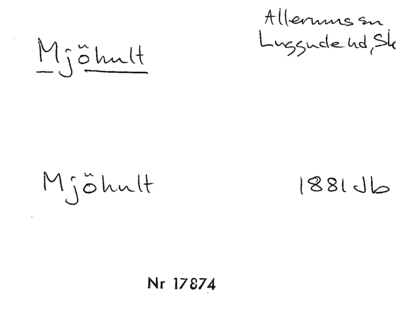 Mjöhult
Allerums sn
Luggude hd, Sk
Mjöhult
1881 Jb
Nr 17874